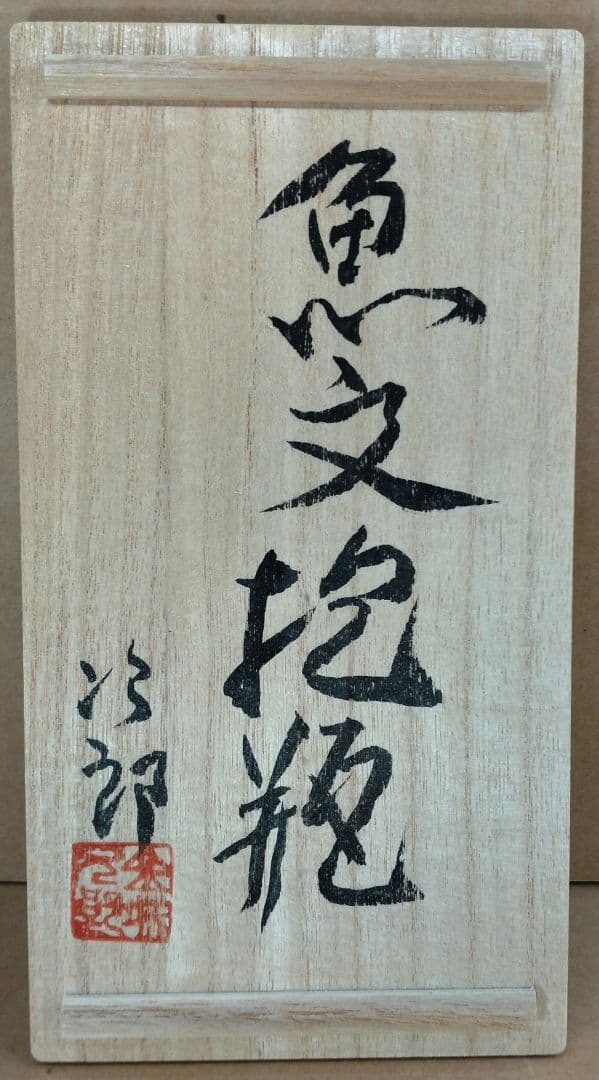 魚文抱瓶
次郎